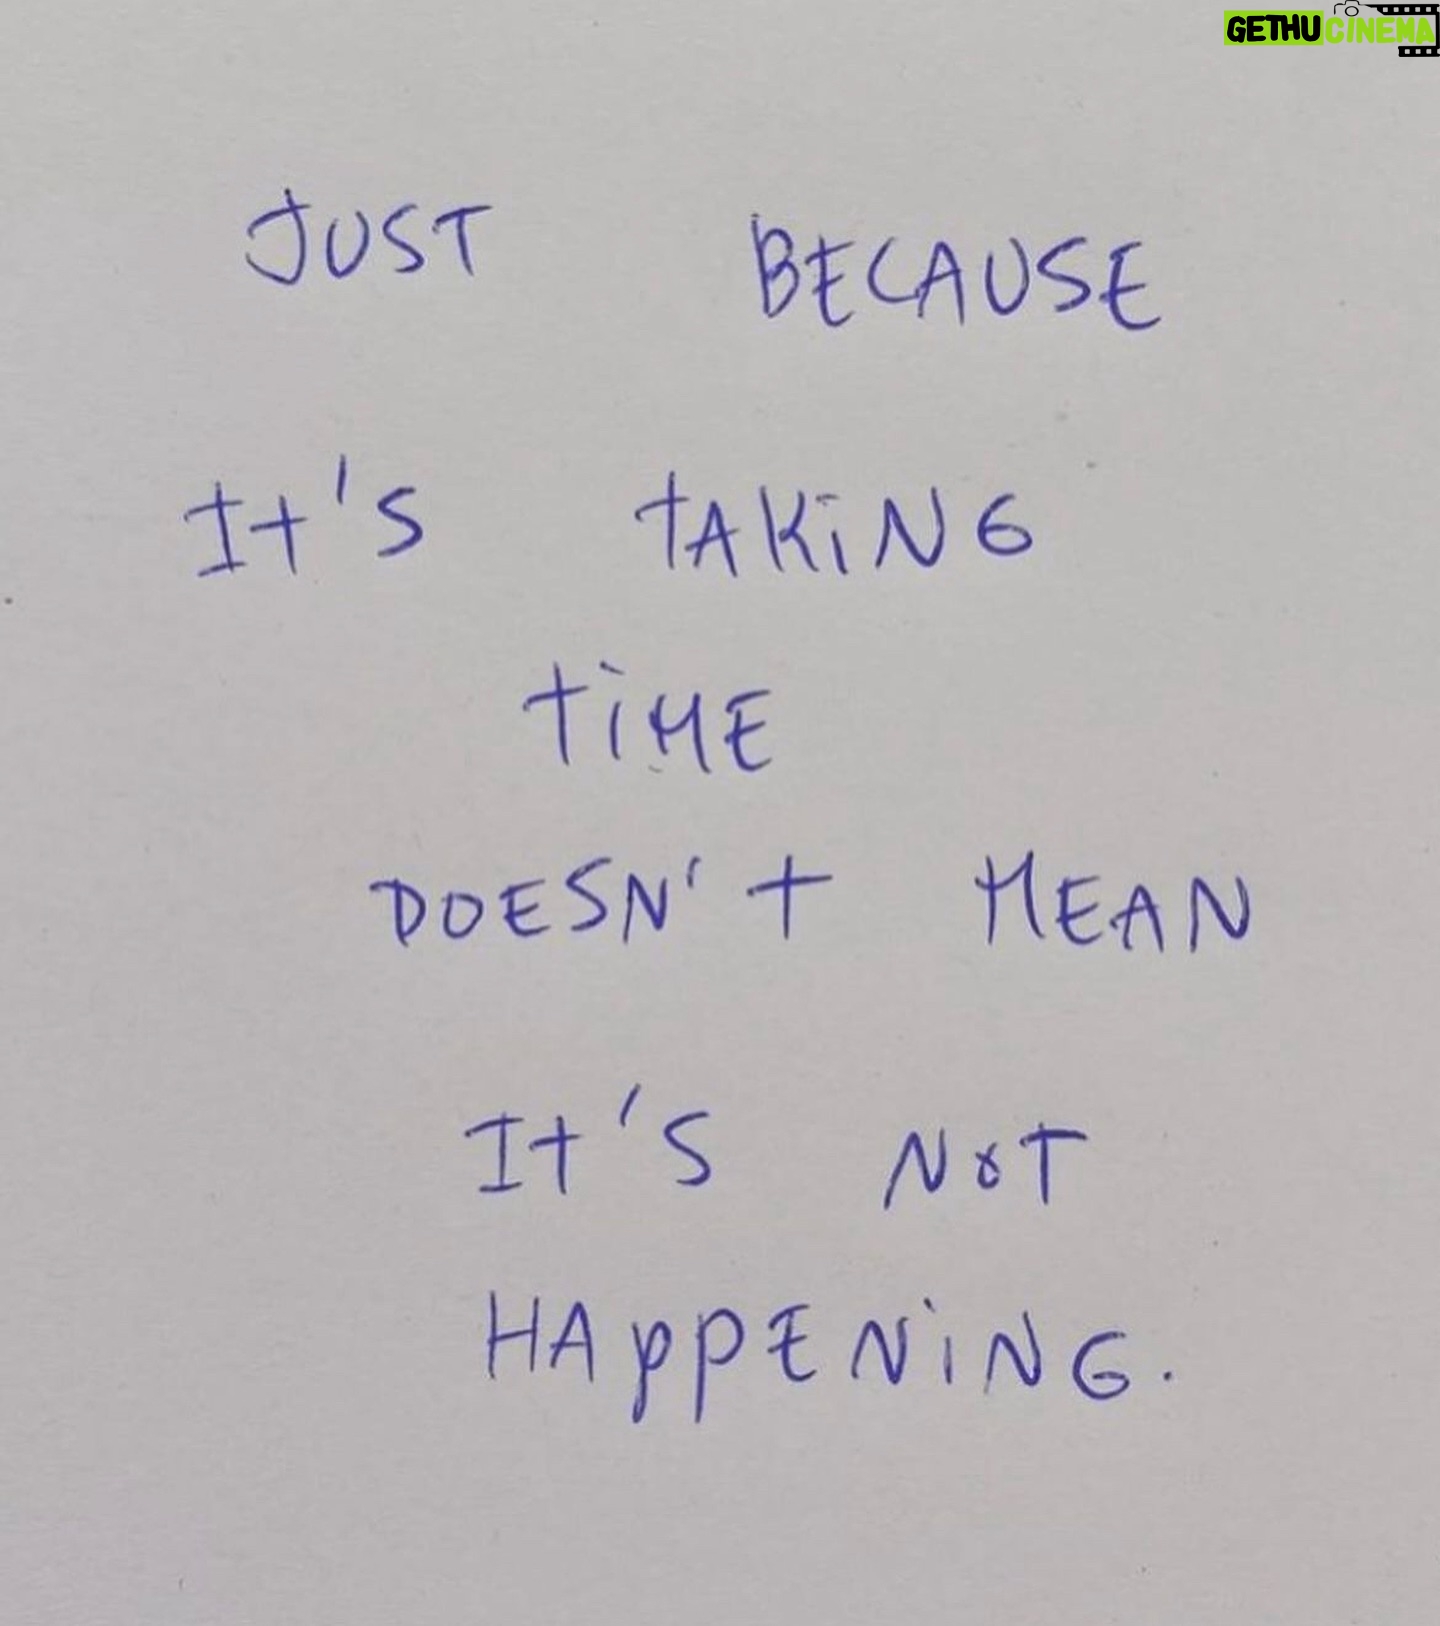 GETHU CINEMA
JUST BECAUSE
It's tAKiNG
tiME
DOESN't MEAN
It's NOT
HAppENiNG.